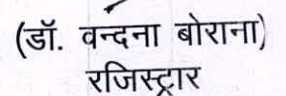 (डॉ. वन्दना बोराना)
रजिस्ट्रार